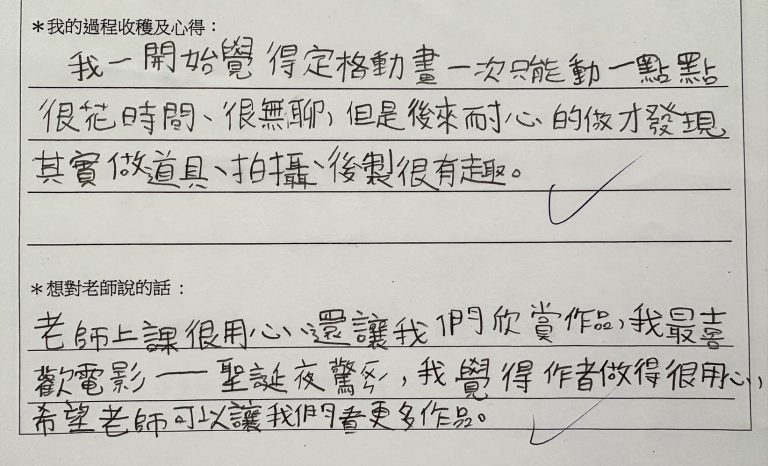 ＊我的過程收穫及心得：
我一開始覺得定格動畫一次只能動一點點
很花時間、很無聊，但是後來耐心的做才發現
其實做道具、拍攝、後製很有趣。
＊想對老師說的話：
老師上課很用心、還讓我們欣賞作品，我最喜
歡電影——聖誕夜驚魂，我覺得作者做得很用心，
希望老師可以讓我們看更多作品。